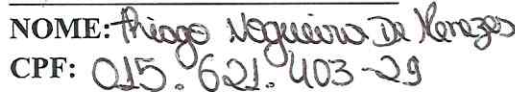 NOME: Thiago Nogueira De Menezes
CPF: 015.621.403-29